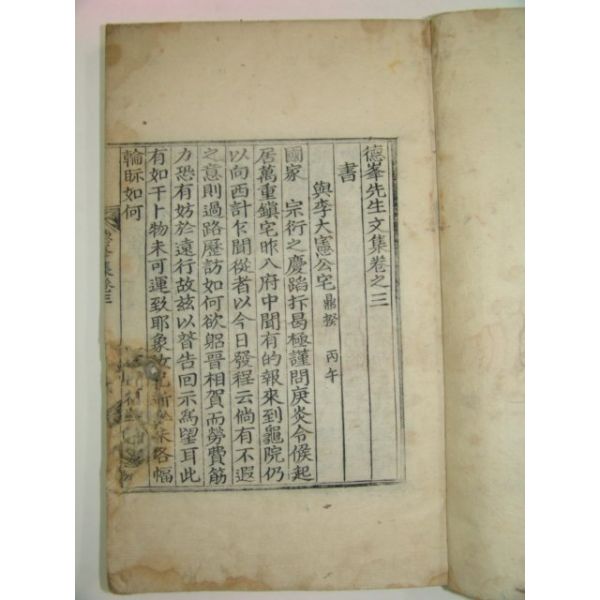 德峯先生文集卷之三
書
與李大憲公宅 鼎揆 丙午
國家 宗衍之慶蹈抃曷極謹問庚炎令候起
居萬重鎭宅昨入府中聞有的報來到龜院仍
以向西計乍聞從者以今日發程云倘有不遐
之意則過路歷訪如何欲躬晉相賀而勞費筋
力恐有妨於遠行故玆以替告回示爲望耳此
有如干卜物未可運致耶象 各幅
輪眎如何